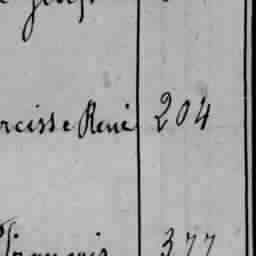 rcisse René 204
François 377